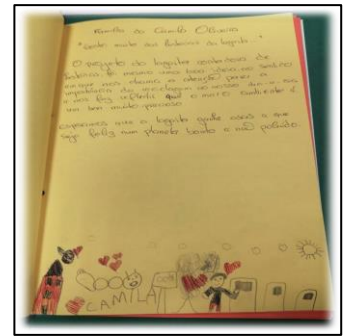 Família do Camilo Oliveira
"Conta muito das histórias da lagarta..."
O projeto da lagarta contadora de
histórias foi mesmo uma boa ideia no sentido
em que nos chamou a atenção para a
importância da reciclagem no nosso dia-a-dia
e nos fez refletir que o meio ambiente é
um bem muito precioso.
esperamos que a lagarta ajude assim a que
seja feliz num planeta bonito e não poluído.
CAMILA